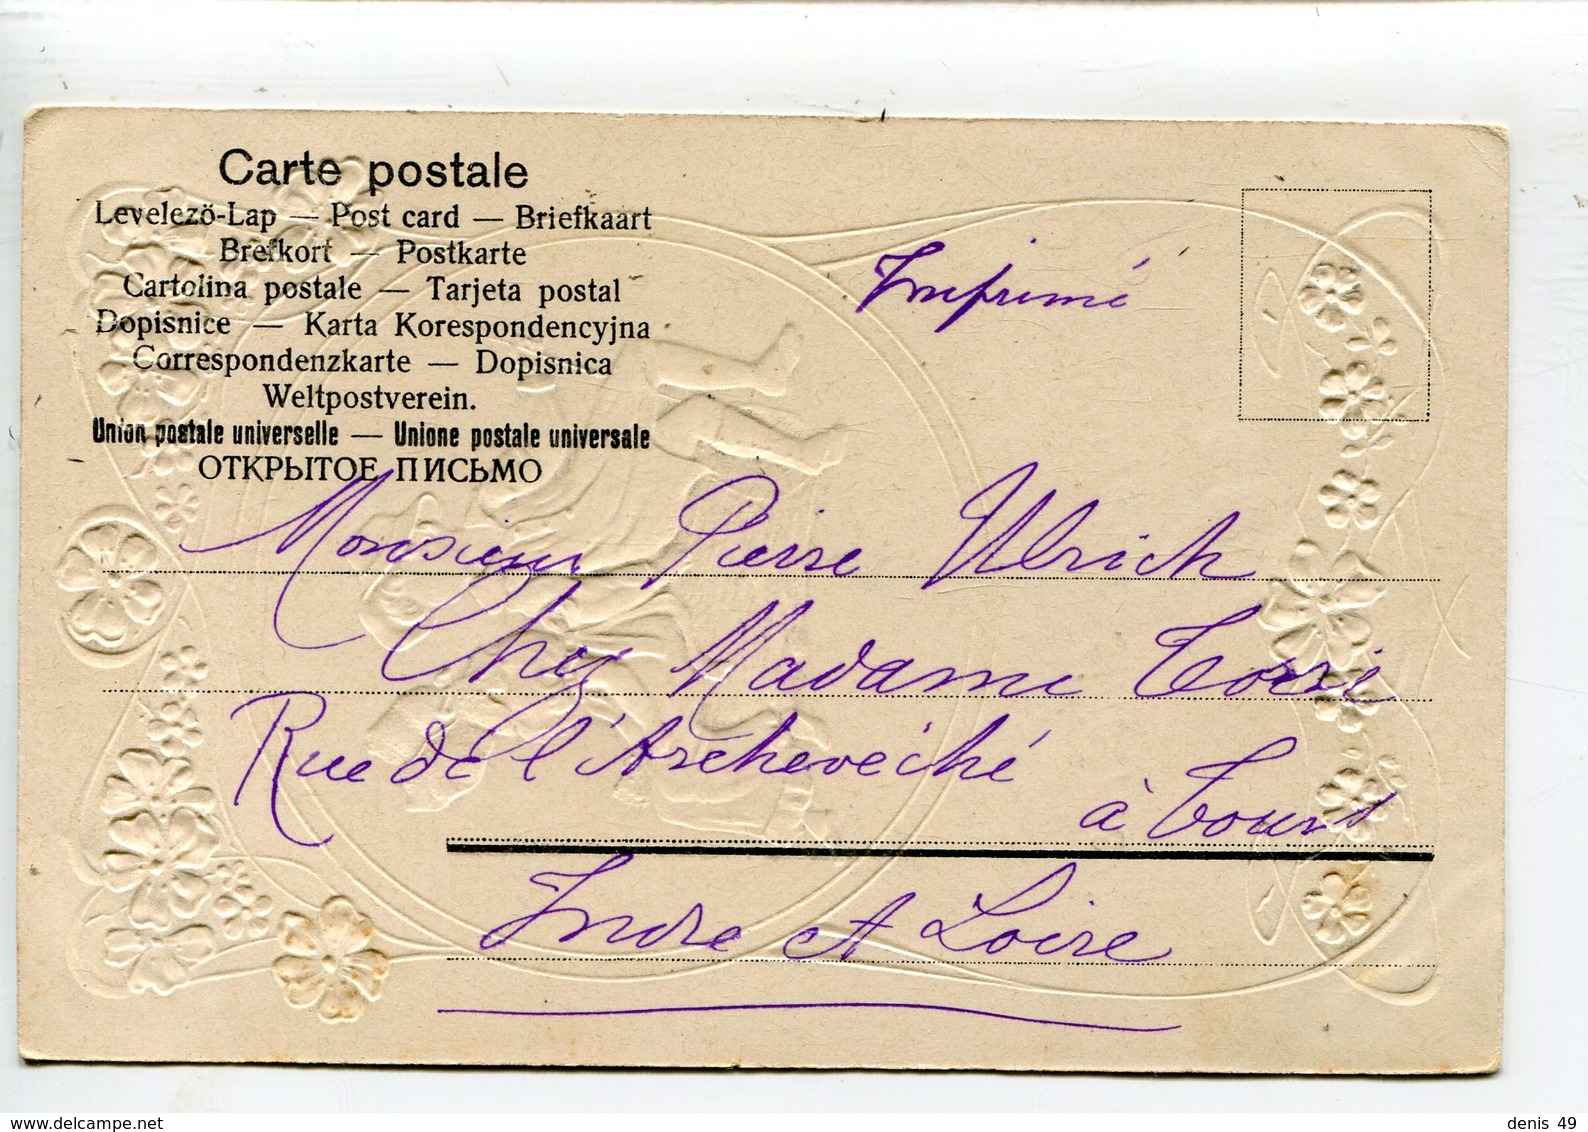 Carte postale
Levelezö-Lap — Post card — Briefkaart
Brefkort — Postkarte
Cartolina postale — Tarjeta postal
Dopisnice — Karta Korespondencyjna
Correspondenzkarte — Dopisnica
Weltpostverein.
Union postale universelle — Unione postale universale
ОТКРЫТОЕ ПИСЬМО
Imprimé
Monsieur Pierre Ulrich
Chez Madame
Rue de l'Archevêché
à Tours
Indre et Loire
delcampe.net
denis 49